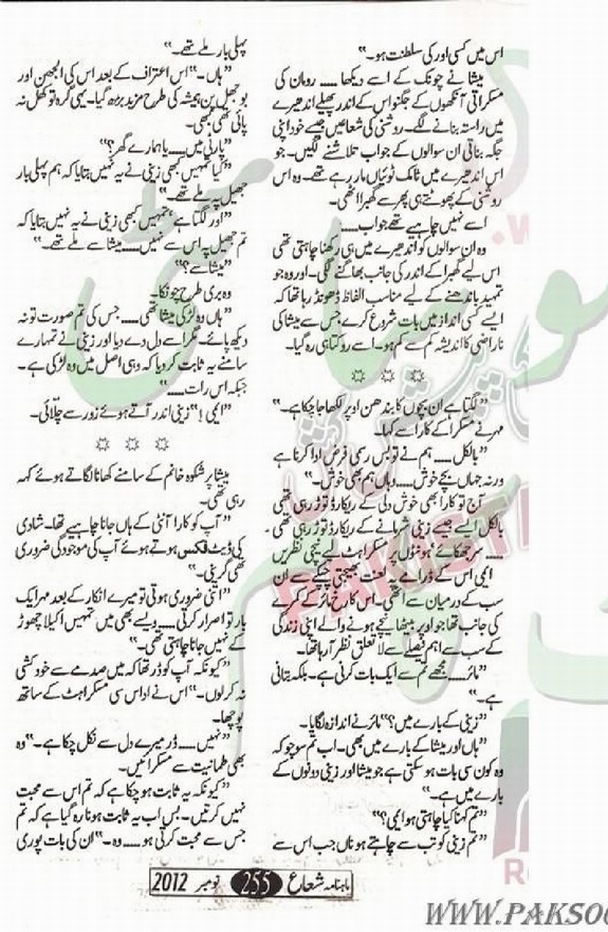 اس میں کسی اور کی سلطنت ہو۔"
میشا نے چونک کے اسے دیکھا ..... رومان کی
مسکراتی آنکھوں کے جگنو اس کے اندر پھیلے اندھیرے
میں راستہ بنانے لگے۔ روشنی کی شعاعیں جیسے خود اپنی
جگہ بناتی ان سوالوں کے جواب تلاشنے لگیں۔ جو
اس اندھیرے میں ٹامک ٹوئیاں مار رہے تھے۔ وہ اس
روشنی کے پھوٹتے ہی پھر سے گھبرا اٹھی۔
اسے نہیں چاہیے تھے جواب.....
وہ ان سوالوں کو اندھیرے میں ہی رکھنا چاہتی تھی
اس لیے گھبرا کے اندر کی جانب بھاگنے لگی۔ اور وہ جو
تمہید باندھنے کے لیے مناسب الفاظ ڈھونڈ رہا تھا کہ
ایسے کسی انداز میں بات شروع کرے جس سے میشا کی
ناراضی کا اندیشہ کم سے کم ہو۔ اسے روکتا ہی رہ گیا۔
"لگتا ہے ان بچوں کا بندھن اوپر لکھا جا چکا ہے۔"
مہر نے مسکرا کے کارا سے کہا۔
"بالکل ..... ہم نے تو بس رسمی فرض ادا کرنا ہے
ورنہ جہاں بچے خوش ..... وہاں ہم بھی خوش۔"
آج تو کارا بھی خوش دلی کے ریکارڈ توڑ رہی تھی
بالکل ایسے جیسے زینی شرمانے کے ریکارڈ توڑ رہی تھی۔
..... سر جھکائے ہونٹوں پر مسکراہٹ لیے نیچی نظریں
ایمی اس کے ڈرامے پہ لعنت بھیجتی چپکے سے ان
سب کے درمیان سے اٹھی۔ اس کا رخ مائر کے کمرے
کی جانب تھا جو اوپر بیٹھا نیچے ہونے والے اپنی زندگی
کے سب سے اہم فیصلے سے لا تعلق نظر آ رہا تھا۔
"مائر..... مجھے تم سے ایک بات کرنی ہے۔ بلکہ بتانی
ہے۔"
"زینی کے بارے میں؟" مائر نے اندازہ لگایا۔
"ہاں اور میشا کے بارے میں بھی۔ اب تم سوچو کہ
وہ کون سی بات ہو سکتی ہے جو میشا اور زینی دونوں کے
بارے میں ہے۔"
"تم کہنا کیا چاہتی ہو ایمی؟"
"تم زینی کو تب سے چاہتے ہو ناں جب اس سے
پہلی بار ملے تھے۔"
"ہاں۔" اس اعتراف کے بعد اس کی الجھن اور
بوجھل پن ہمیشہ کی طرح مزید بڑھ گیا۔ یہی گرہ تو کھل نہ
پاتی تھی کبھی۔
"پارٹی میں ..... یا ہمارے گھر؟"
"کیا تمہیں کبھی زینی نے یہ نہیں بتایا کہ ہم پہلی بار
جھیل پہ ملے تھے۔"
"اور لگتا ہے تمہیں کبھی زینی نے یہ نہیں بتایا کہ
تم جھیل پہ اس سے نہیں ..... میشا سے ملے تھے۔"
"میشا سے؟"
وہ بری طرح چونکا۔
"ہاں وہ لڑکی میشا تھی ..... جس کی تم صورت تو نہ
دیکھ پائے۔ مگر اسے دل دے دیا اور زینی نے تمہارے
سامنے یہ ثابت کر دیا کہ وہی اصل میں وہ لڑکی ہے۔
جبکہ اس رات....."
"ایمی!" زینی اندر آتے ہوئے زور سے چلّائی۔
میشا پر شکوہ خانم کے سامنے کھانا لگاتے ہوئے کہہ
رہی تھی۔
"آپ کو کارا آنٹی کے ہاں جانا چاہیے تھا۔ شادی
کی ڈیٹ فکس ہوتے ہوئے آپ کی موجودگی ضروری
تھی گرینی۔"
"اتنی ضروری ہوتی تو میرے انکار کے بعد مہر ایک
بار تو اصرار کرتی..... ویسے بھی میں تمہیں اکیلا چھوڑ
کے نہیں جانا چاہتی تھی۔"
"کیونکہ آپ کو ڈر تھا کہ میں صدمے سے خودکشی
نہ کر لوں۔" اس نے اداس سی مسکراہٹ کے ساتھ
پوچھا۔
"نہیں ..... ڈر میرے دل سے نکل چکا ہے۔" وہ
بھی طمانیت سے مسکرائیں۔
"کیونکہ یہ ثابت ہو چکا ہے کہ تم اس سے محبت
نہیں کرتیں۔ بس اب یہ ثابت ہونا رہ گیا ہے کہ تم
جس سے محبت کرتی ہو ..... وہ۔" ان کی بات پوری
ماہنامہ شعاع 255 نومبر 2012
WWW.PAKSO